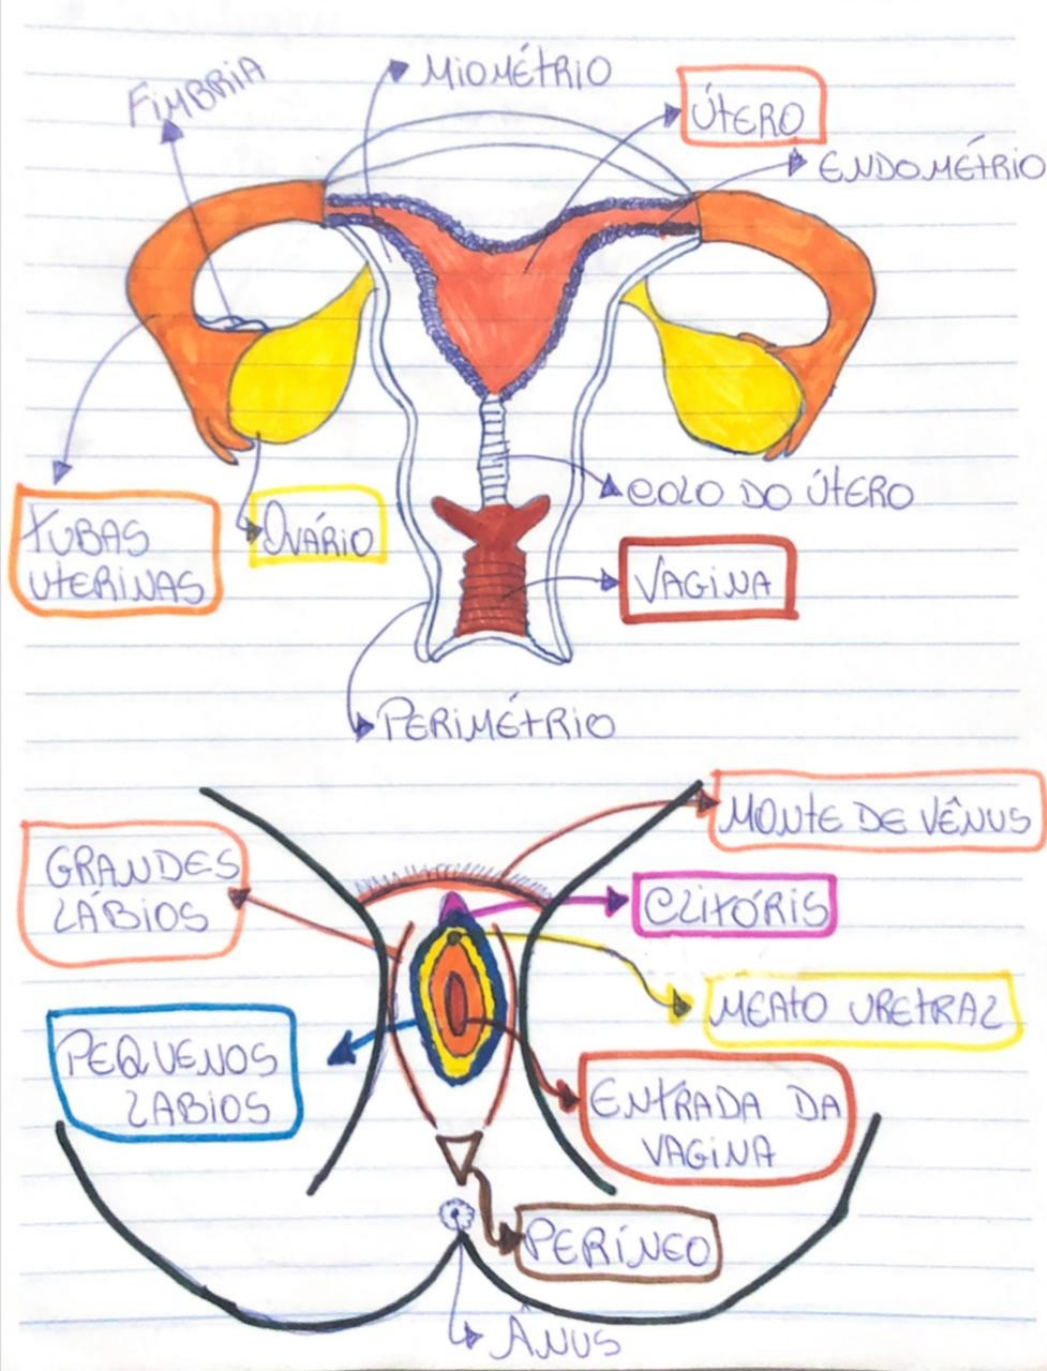 FÍMBRIA
MIOMÉTRIO
ÚTERO
ENDOMÉTRIO
TUBAS
UTERINAS
OVÁRIO
COLO DO ÚTERO
VAGINA
PERIMÉTRIO
MONTE DE VÊNUS
GRANDES
LÁBIOS
CLITÓRIS
MEATO URETRAL
PEQUENOS
LABIOS
ENTRADA DA
VAGINA
PERÍNEO
ÂNUS